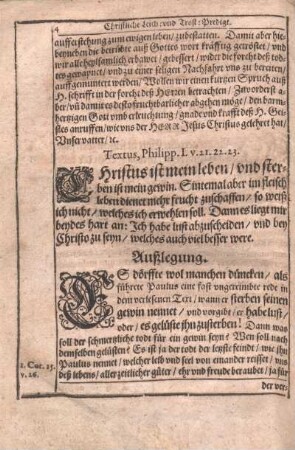 Christliche Leich: vnd Trost: Predigt.
aufferstehung zum ewigen leben / zubestatten. Damit aber hie-
beyneben die betrübte auß Gottes wort kräfftig getröstet / vnd
wir alle heylsamlich erbawet / gebessert / wider die forcht deß tod-
tes gewapnet / vnd zu einer seligen Nachfahrt vns zu bereiten /
auffgemuntert werden / Wollen wir einen kurtzen Spruch auß
H. schrifft in der forcht deß HErren betrachten / Zuvorderst a-
ber / vñ damit es desto fruchtbarlicher abgehen möge / den barm-
hertzigen Gott vmb erleuchtung / gnade vnd krafft deß H. Gei-
stes anruffen / wie vns der HERR Jesus Christus gelehret hat /
Vnser vatter / &c.
Textus, Philipp. I. v. 21. 22. 23.
CHristus ist mein leben / vnd ster-
ben ist mein gewin. Sintemal aber im fleisch
leben dienet mehr frucht zuschaffen / so weiß
ich nicht / welches ich erwehlen soll. Dann es liegt mir
beydes hart an: Ich habe lust abzuscheiden / vnd bey
Christo zu seyn / welches auch viel besser were.
Außlegung.
ES dörffte wol manchen düncken / als
führete Paulus eine fast vngereimbte rede in
dem verlesenen Text / wann er sterben seinen
gewin nennet / vnd vorgibt / er habe lust /
oder / es gelüste ihn zusterben! Dann was
soll der schmertzliche todt für ein gewin seyn? Wen soll nach
demselben gelüsten? Es ist ja der todt der letzste feindt / wie ihn
1. Cor. 15. Paulus nennet / welcher leib vnd seel von einander reisset / vns
v. 26. deß lebens / aller zeitlicher güter / ehr vnd freude beraubet / ja für
der ver-